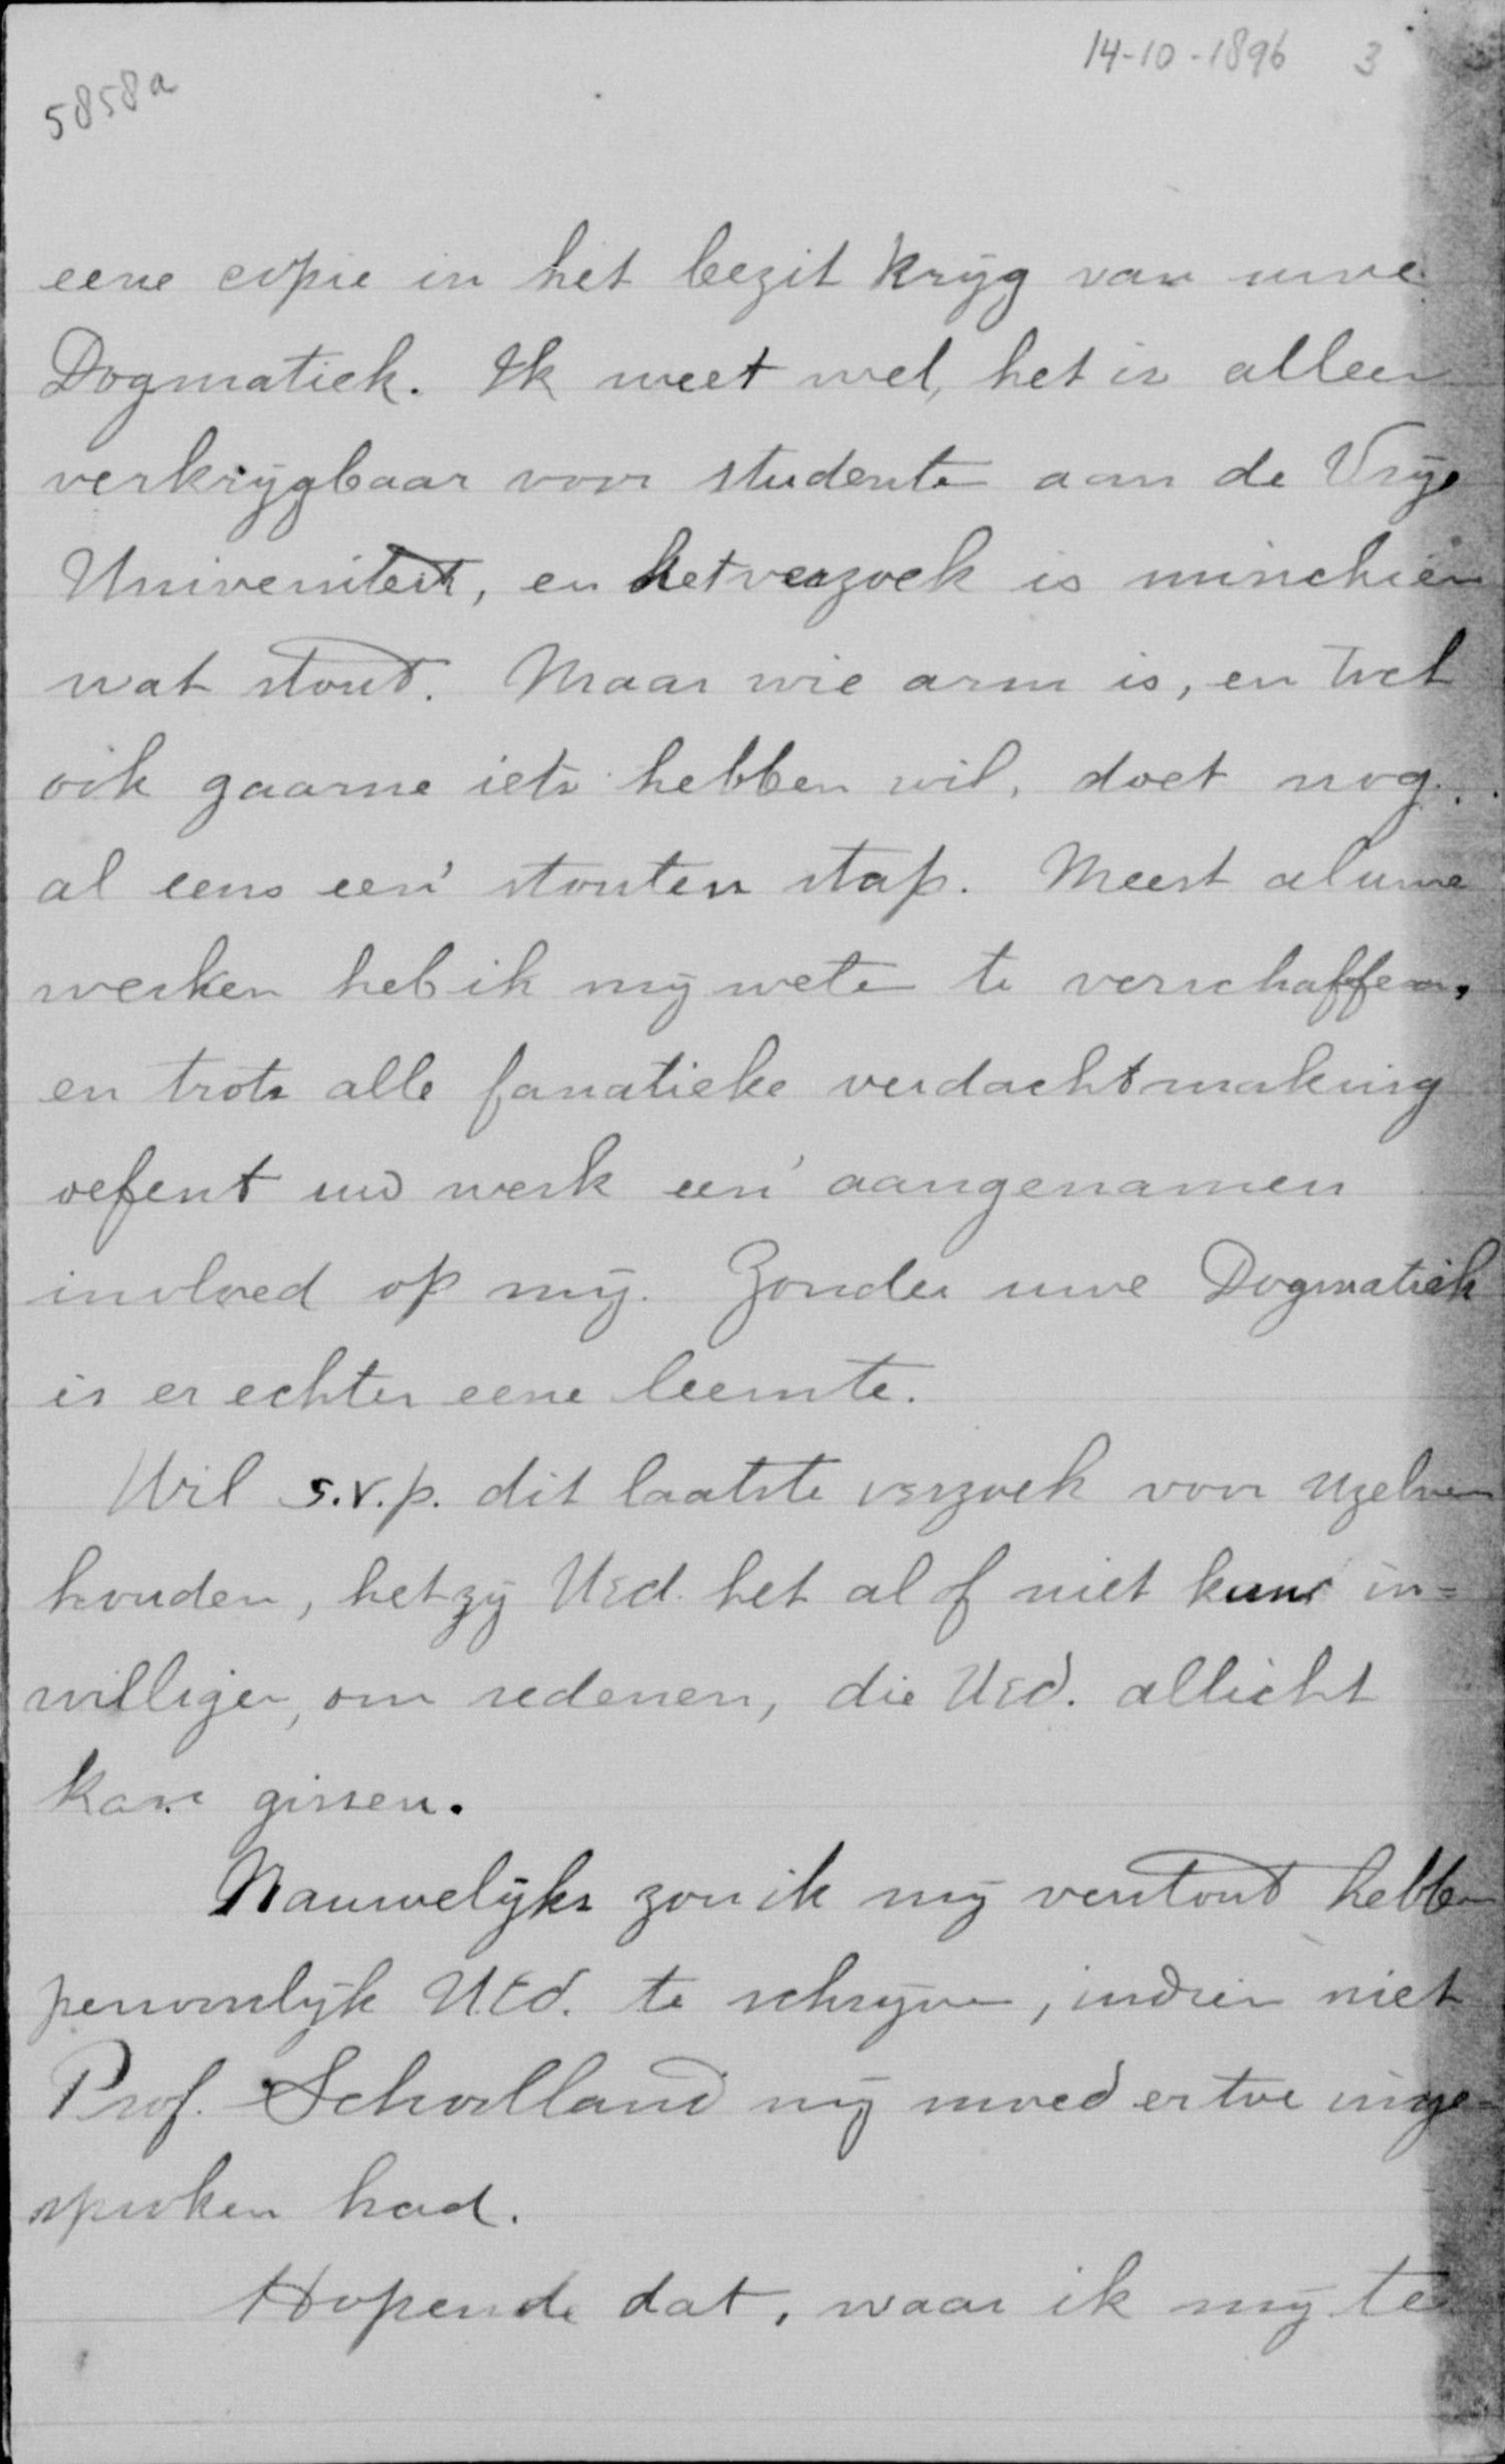 14-10-1896 3
5858a
eene copie in het bezit krijg van uwe
Dogmatiek. Ik weet wel, het is alleen
verkrijgbaar voor studenten aan de Vrije
Universiteit, en het verzoek is misschien
wat stout. Maar wie arm is, en toch
ook gaarne iets hebben wil, doet nog
al eens een' stouten stap. Meest al uwe
werken heb ik mij weten te verschaffen,
en trots alle fanatieke verdachtmaking
oefent uw werk een' aangenamen
invloed op mij. Zonder uwe Dogmatiek
is er echter eene leemte.
Wil s.v.p. dit laatste verzoek voor Uzelven
houden, hetzij UEd. het al of niet kunt in=
willigen, om redenen, die UEd. allicht
kan gissen.
Nauwelijks zou ik mij verstout hebben
persoonlijk UEd. te schrijven, indien niet
Prof. Scholland mij moed ertoe inge=
sproken had.
Hopende dat, waar ik mij te